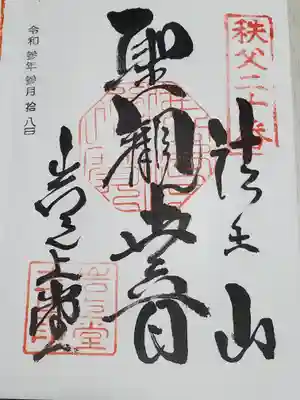 秩父二十番
法王山
聖観世音
岩之上堂
令和 参年参月 拾八日